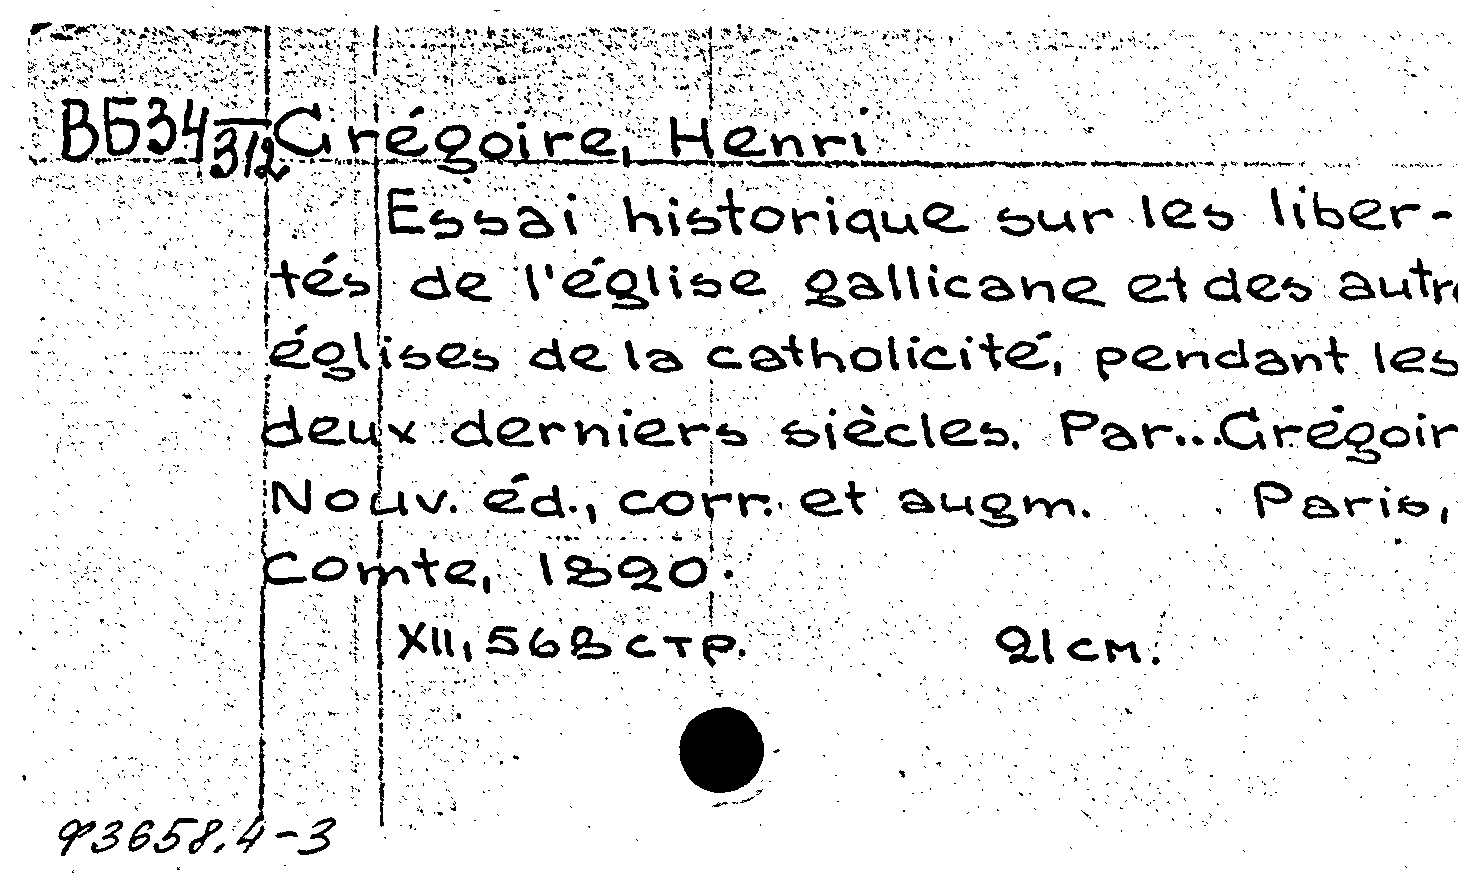 ВБ34/312 Grégoire, Henri
Essai historique sur les liber-
tés de l'église gallicane et des autre
églises de la catholicité, pendant les
deux derniers siècles. Par...Grégoir
Nouv. éd., corr. et augm. Paris,
Comte, 1820.
XII, 568 стр. 21 см.
93658.4-3